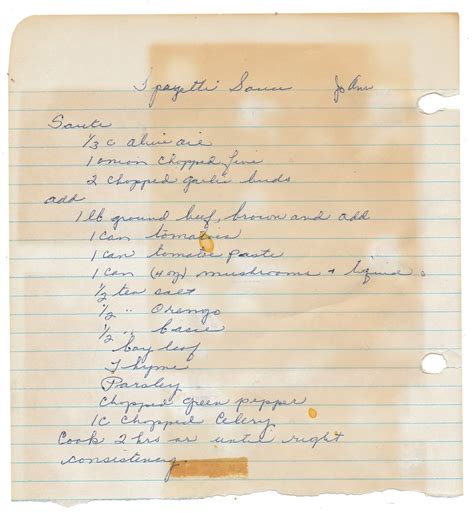 Spagetti Sauce Jo Ann
Saute
1/3 c olive oil
1 onion chopped fine
2 chopped garlic buds
add
1 lb ground beef, brown and add
1 can tomatoes
1 can tomatoe paste
1 can (4 oz) mushrooms + liquid
1/2 tea salt
1/2 " Orengo
1/2 " basic
bay leaf
Thyme
Parsley
Chopped green pepper
1 C chopped Celery
Cook 2 hrs or until right
consistency.